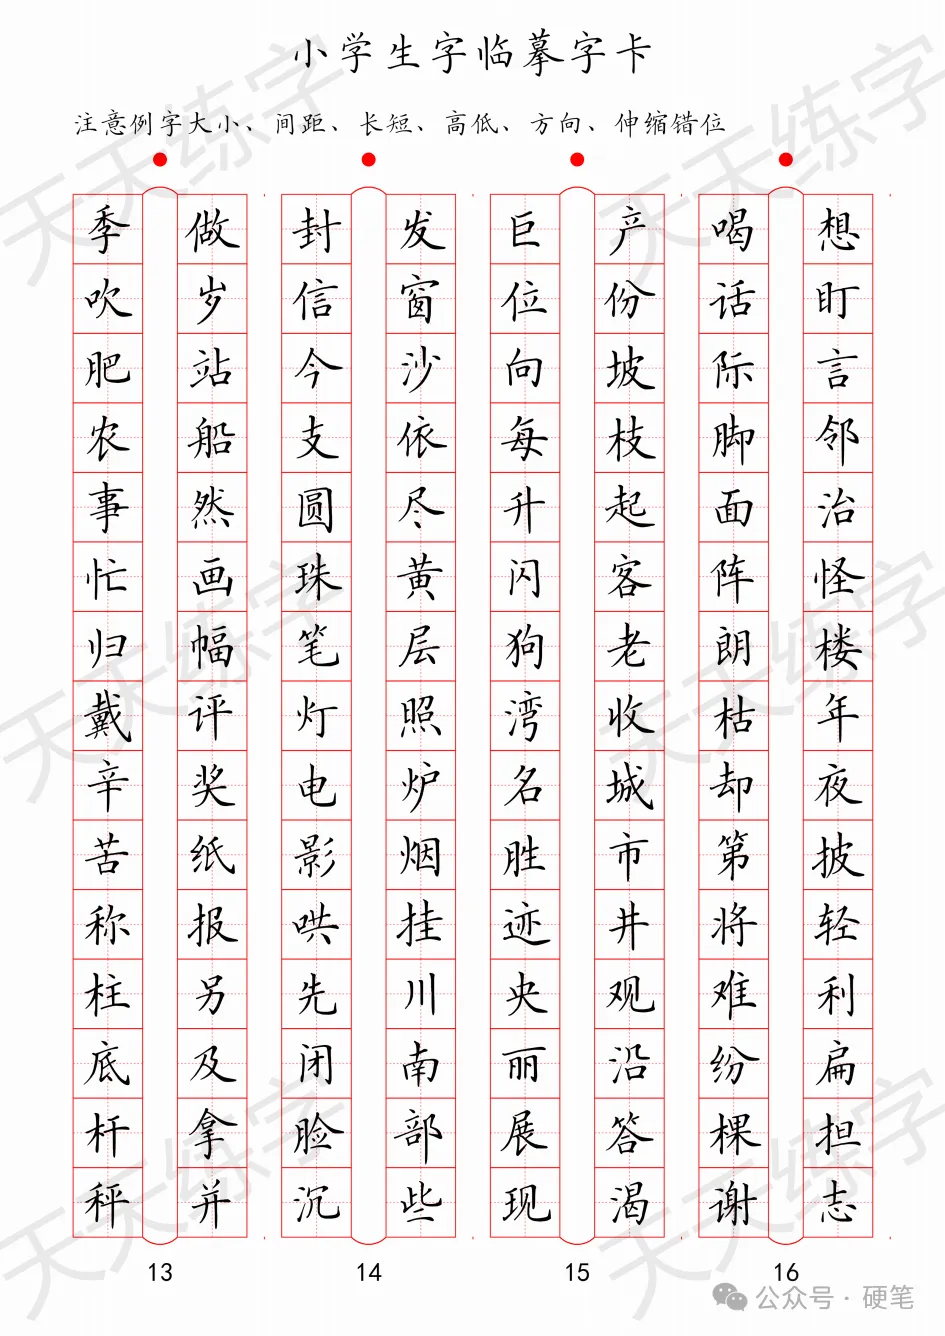 小学生字临摹字卡
注意例字大小、间距、长短、高低、方向、伸缩错位
季 做 封 发 巨 产 喝 想
吹 岁 信 窗 位 份 话 盯
肥 站 今 沙 向 坡 际 言
农 船 支 依 每 枝 脚 邻
事 然 圆 尽 升 起 面 治
忙 画 珠 黄 闪 客 阵 怪
归 幅 笔 层 狗 老 朗 楼
戴 评 灯 照 湾 收 枯 年
辛 奖 电 炉 名 城 却 夜
苦 纸 影 烟 胜 市 第 披
称 报 哄 挂 迹 井 将 轻
柱 另 先 川 央 观 难 利
底 及 闭 南 丽 沿 纷 扁
杆 拿 脸 部 展 答 棵 担
秤 并 沉 些 现 渴 谢 志
13 14 15 16
公众号·硬笔
天天练字
天天练字
天天练字
天天练字
天天练字
天天练字